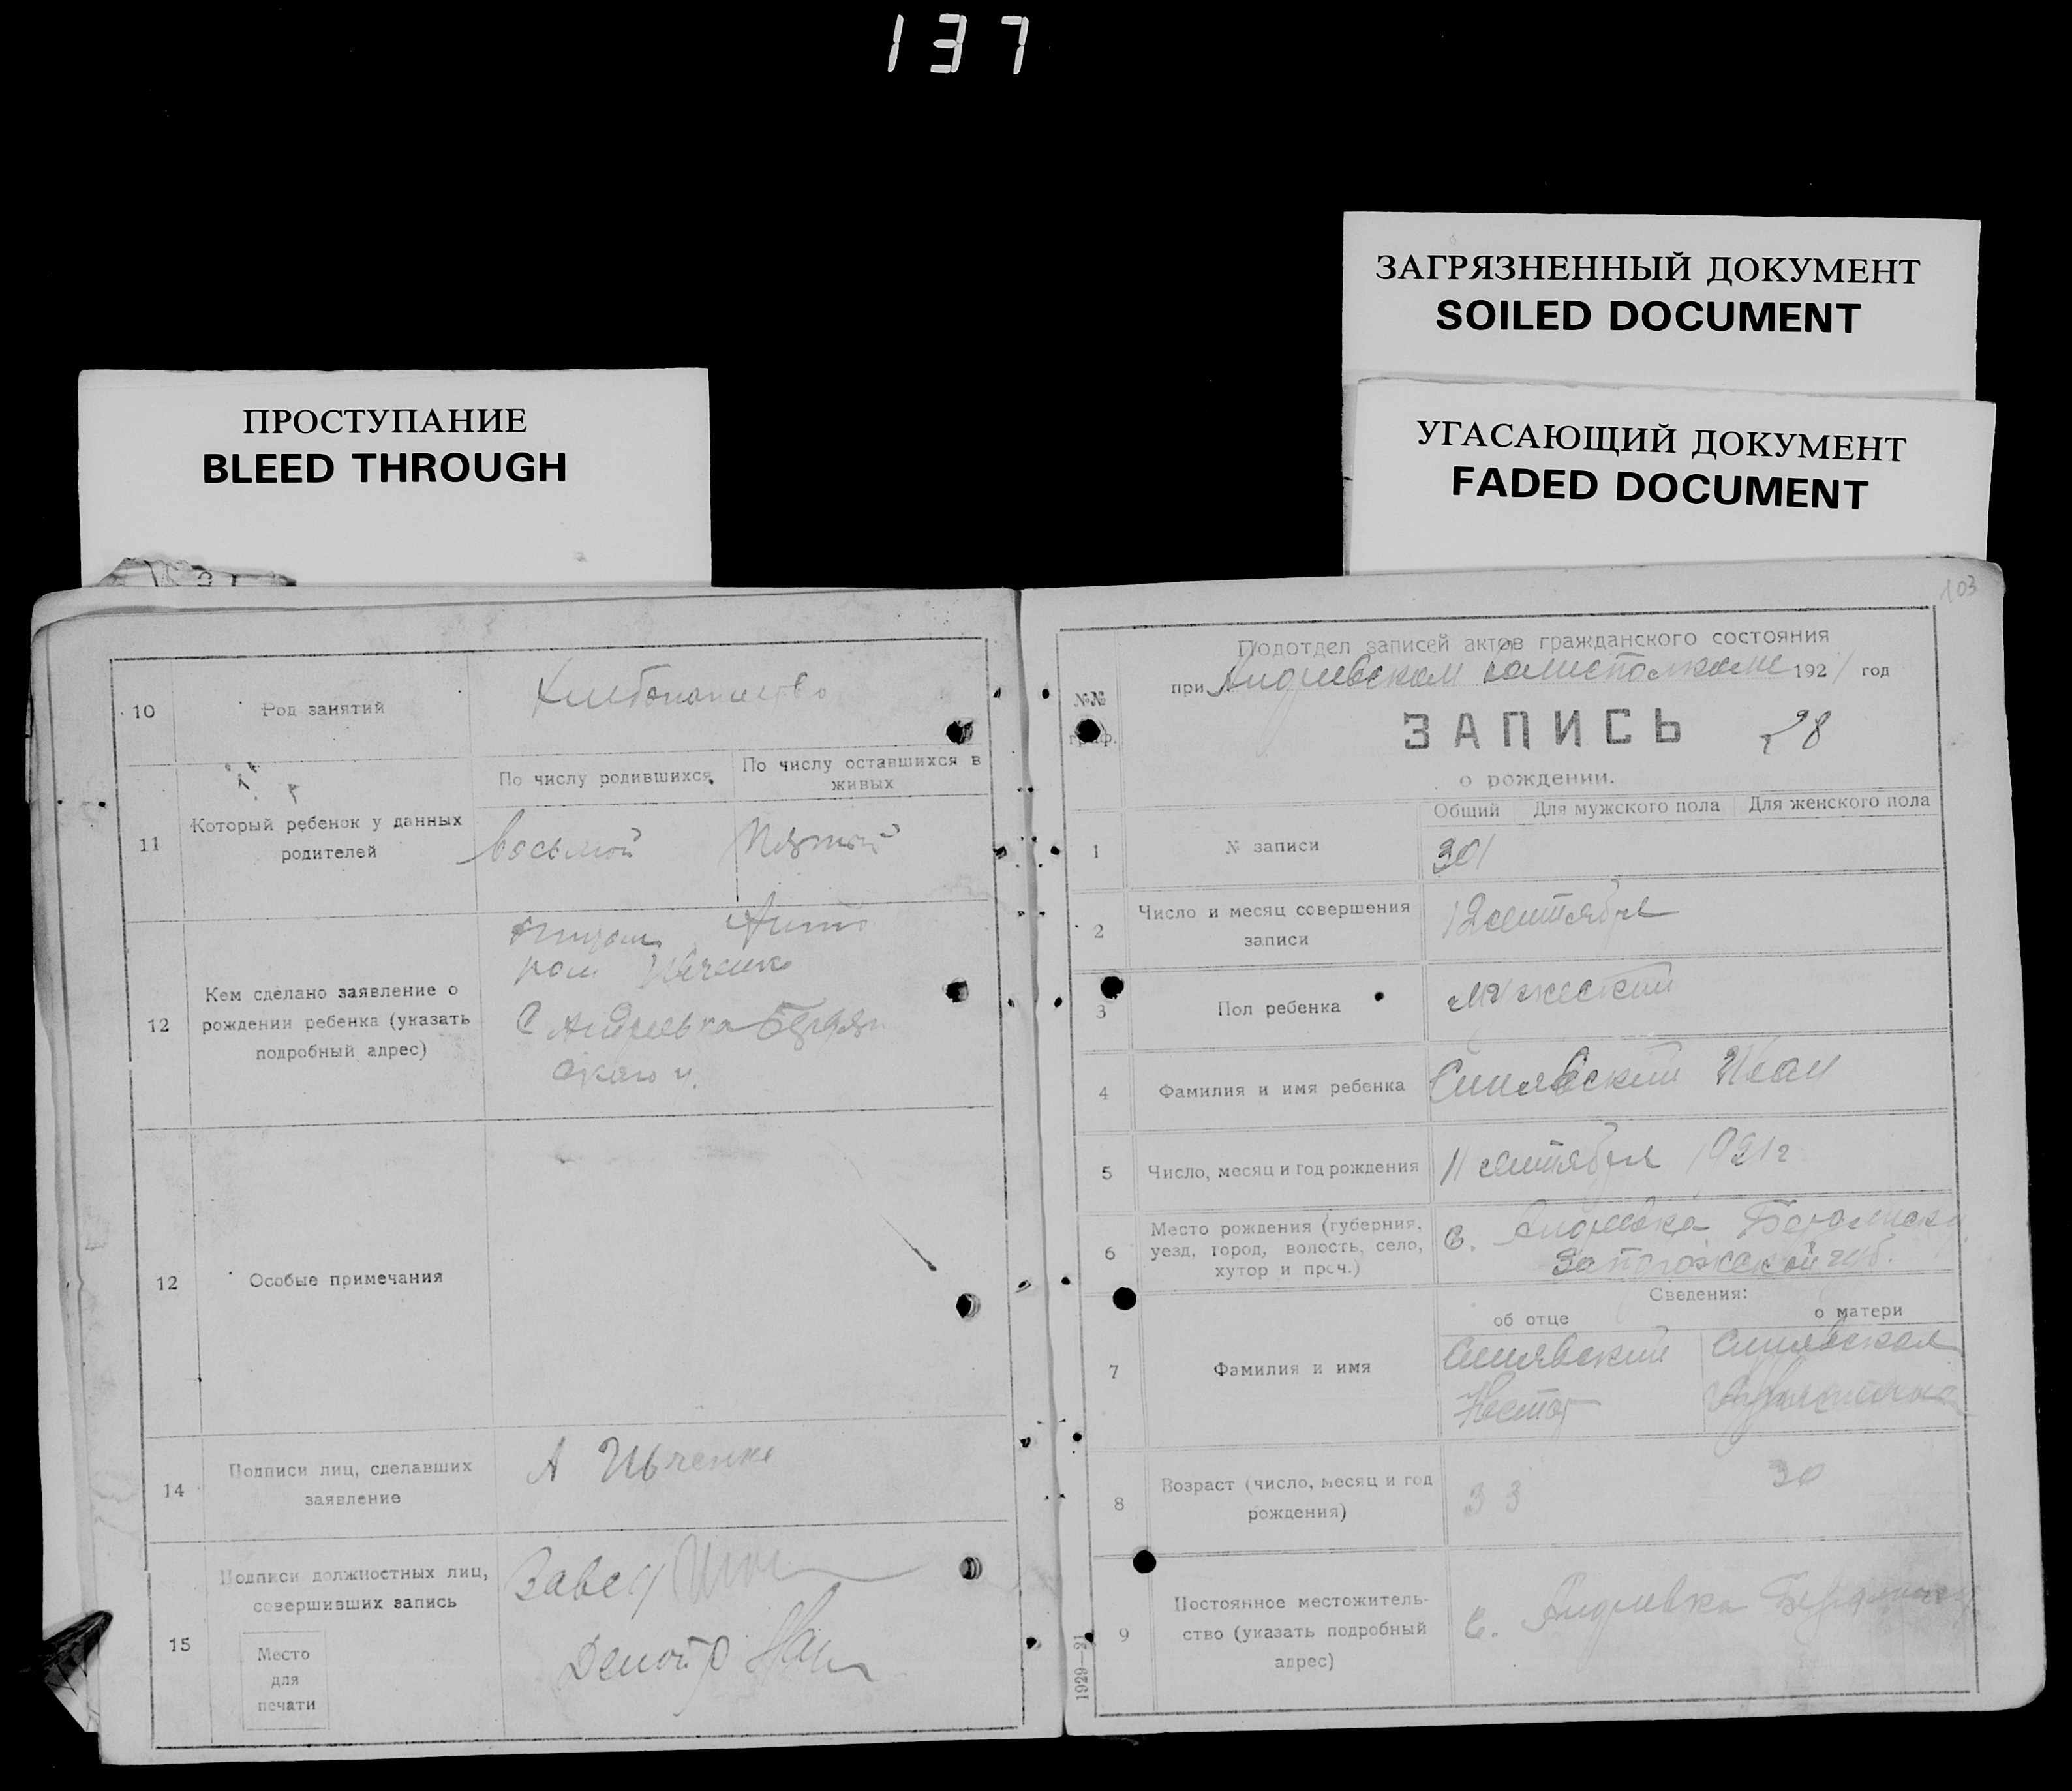 137
ЗАГРЯЗНЕННЫЙ ДОКУМЕНТ
SOILED DOCUMENT
УГАСАЮЩИЙ ДОКУМЕНТ
FADED DOCUMENT
ПРОСТУПАНИЕ
BLEED THROUGH
10
Род занятий
Хлебопашество
11
Который ребенок у данных
родителей
По числу родившихся
По числу оставшихся в
живых
восьмой
пятый
12
Кем сделано заявление о
рождении ребенка (указать
подробный адрес)
Ивченко
С Андреевка Бердян
ского у.
12
Особые примечания
14
Подписи лиц, сделавших
заявление
А Ивченко
15
Подписи должностных лиц,
совершивших запись
Место
для
печати
Завед
Делопр
103
№№
граф.
Подотдел записей актов гражданского состояния
при Андреевском 1921 год
ЗАПИСЬ 28
о рождении.
Общий
Для мужского пола
Для женского пола
1
№ записи
301
2
Число и месяц совершения
записи
12 сентября
3
Пол ребенка
мужеский
4
Фамилия и имя ребенка
Синявский Иван
5
Число, месяц и год рождения
11 сентября 1921 г
6
Место рождения (губерния,
уезд, город, волость, село,
хутор и проч.)
с. Андреевка Бердянск
Запорожской губ.
Сведения:
об отце
о матери
7
Фамилия и имя
Синявский
Нестор
Синявская
8
Возраст (число, месяц и год
рождения)
33
30
9
Постоянное местожитель-
ство (указать подробный
адрес)
с. Андреевка Бердянск
1929—21